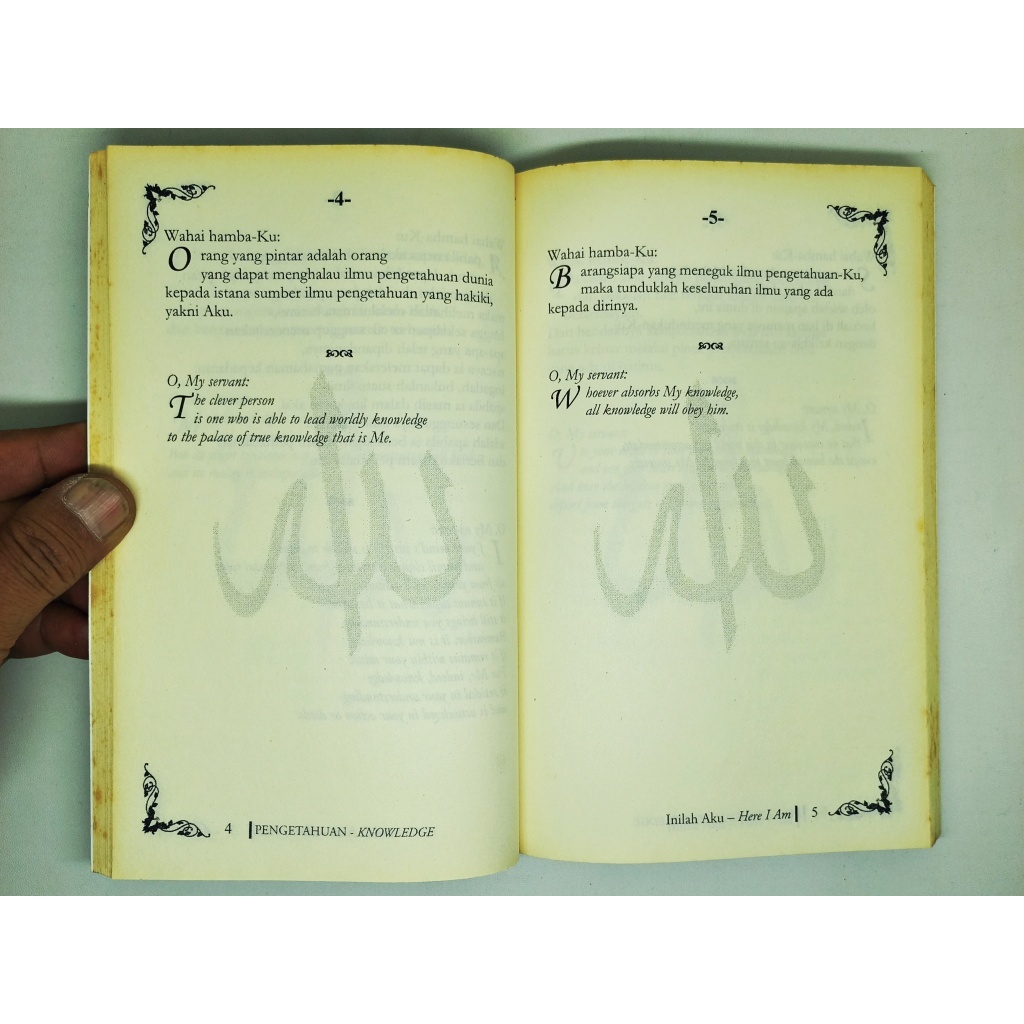 -4-
Wahai hamba-Ku:
Orang yang pintar adalah orang
yang dapat menghalau ilmu pengetahuan dunia
kepada istana sumber ilmu pengetahuan yang hakiki,
yakni Aku.
O, My servant:
The clever person
is one who is able to lead worldly knowledge
to the palace of true knowledge that is Me.
الله
4 PENGETAHUAN - KNOWLEDGE
-5-
Wahai hamba-Ku:
Barangsiapa yang meneguk ilmu pengetahuan-Ku,
maka tunduklah keseluruhan ilmu yang ada
kepada dirinya.
O, My servant:
Whoever absorbs My knowledge,
all knowledge will obey him.
الله
Inilah Aku – Here I Am 5